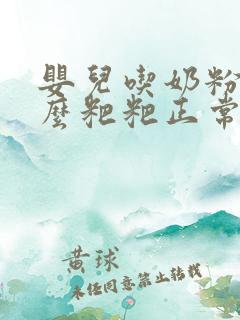 嬰兒喫奶粉
麼粑粑正常
黄球
未经同意禁止转载